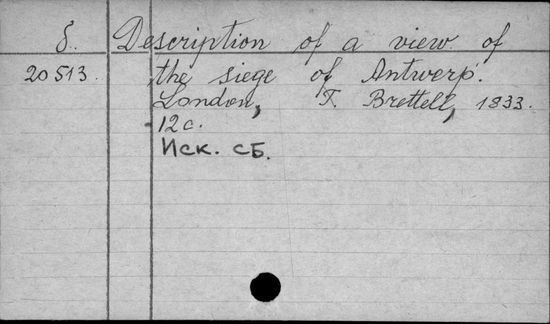 δ. Description of a view of
20513. the siege of Antwerp.
London, T. Brettell, 1833.
12 с.
Иск. сб.